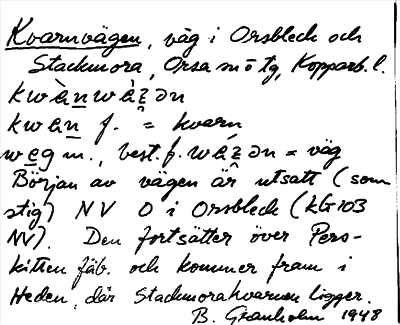 Kvarnvägen, väg i Orsbleck och
Stackmora, Orsa sn o tg, Kopparb. l.
kwànwä̀ʐən
kwan f. = kvarn
weg m., best. f. wä́ʐən = väg
Början av vägen är utsatt (som
stig) NV O i Orsbleck (kG103
NV). Den fortsätter över Pers-
kitten fäb. och kommer fram i
Heden, där Stackmorakvarnen ligger.
B. Granholm 1948